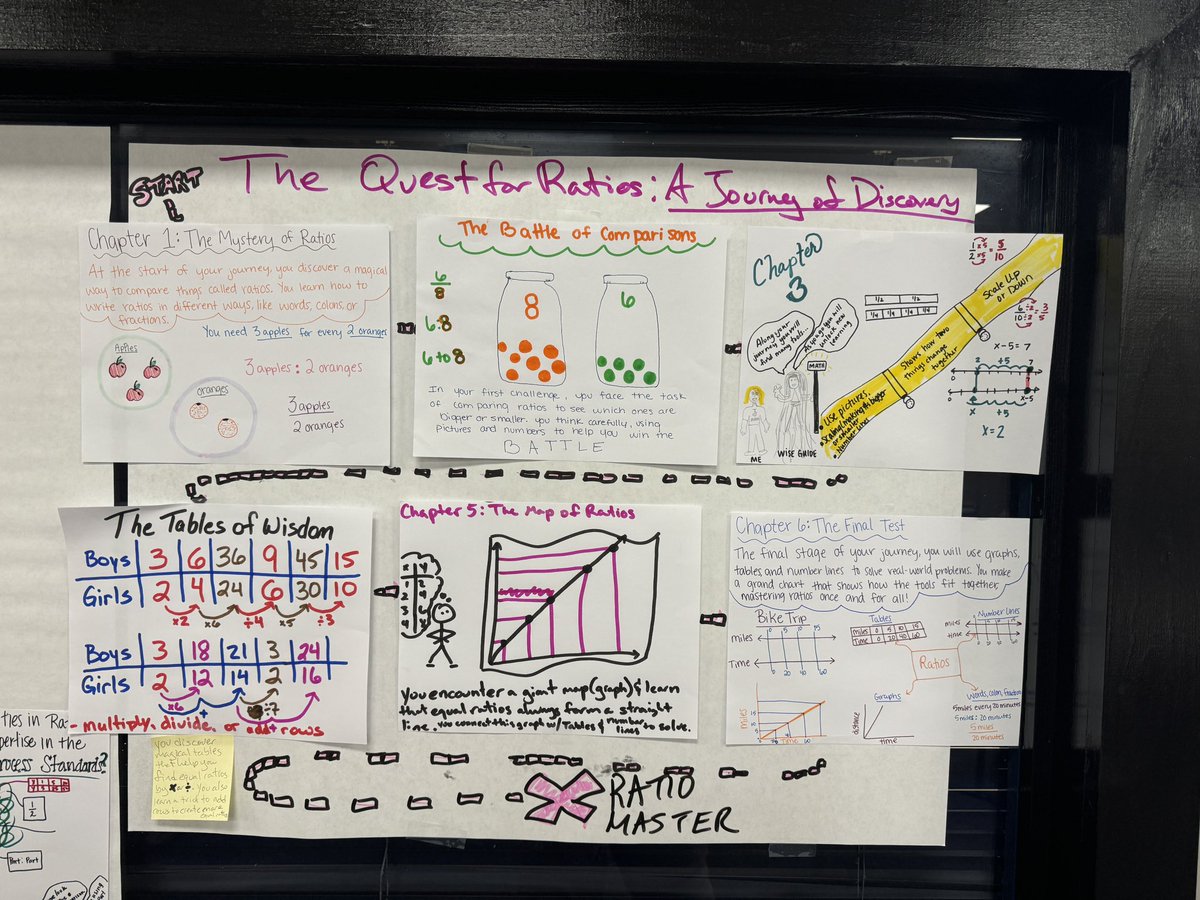 START
The Quest for Ratios: A Journey of Discovery
Chapter 1: The Mystery of Ratios
At the start of your journey, you discover a magical
way to compare things called ratios. You learn how to
write ratios in different ways, like words, colons, or
fractions.
You need 3 apples for every 2 oranges
Apples
oranges
3 apples : 2 oranges
3 apples
2 oranges
The Battle of Comparisons
6
8
6:8
6 to 8
8
6
In your first challenge, you face the task
of comparing ratios to see which ones are
bigger or smaller. you think carefully, using
pictures and numbers to help you win the
BATTLE
Chapter
3
Along your
journey, you will
find many tools...
As you go you will
unlock new
learning
MATH
ME
WISE GUIDE
1/2 1/2
1/4 1/4 1/4 1/4
Use pictures.
Number lines
Shows how two
things change
together
Scale Up
or Down
1 x5 = 5
2 x5 10
6 ÷2 = 3
10 ÷2 5
x-5=7
+5
0 2 7
0 x x-5
+5
x=2
The Tables of Wisdom
Boys 3 6 36 9 45 15
Girls 2 4 24 6 30 10
x2 x6 ÷4 x5 ÷3
Boys 3 18 21 3 24
Girls 2 12 14 2 16
x6 + ÷7
- multiply, divide, or add rows
you discover
magical tables
that help you
find equal ratios
by x or ÷. You also
learn a trick to add
rows to create more
equal ratios
Chapter 5: The Map of Ratios
x y
You encounter a giant map (graph) & learn
that equal ratios always form a straight
line. You connect this graph w/ Tables & number
lines to solve.
Chapter 6: The Final Test
The final stage of your journey, you will use graphs,
tables and number lines to solve real-world problems. You make
a grand chart that shows how the tools fit together,
mastering ratios once and for all!
Bike Trip
miles 0 5 10 15
Time 0 20 40 60
Tables
miles 0 5 10 15
Time 0 20 40 60
Number lines
miles
time
Ratios
miles
15
10
5
Time
Graphs
distance
time
Words, colon, fraction
5 miles every 20 minutes
5 miles : 20 minutes
5 miles
20 minutes
RATIO
MASTER
ties in
pertise in the
rocess Standards?
1
2
Part: Part